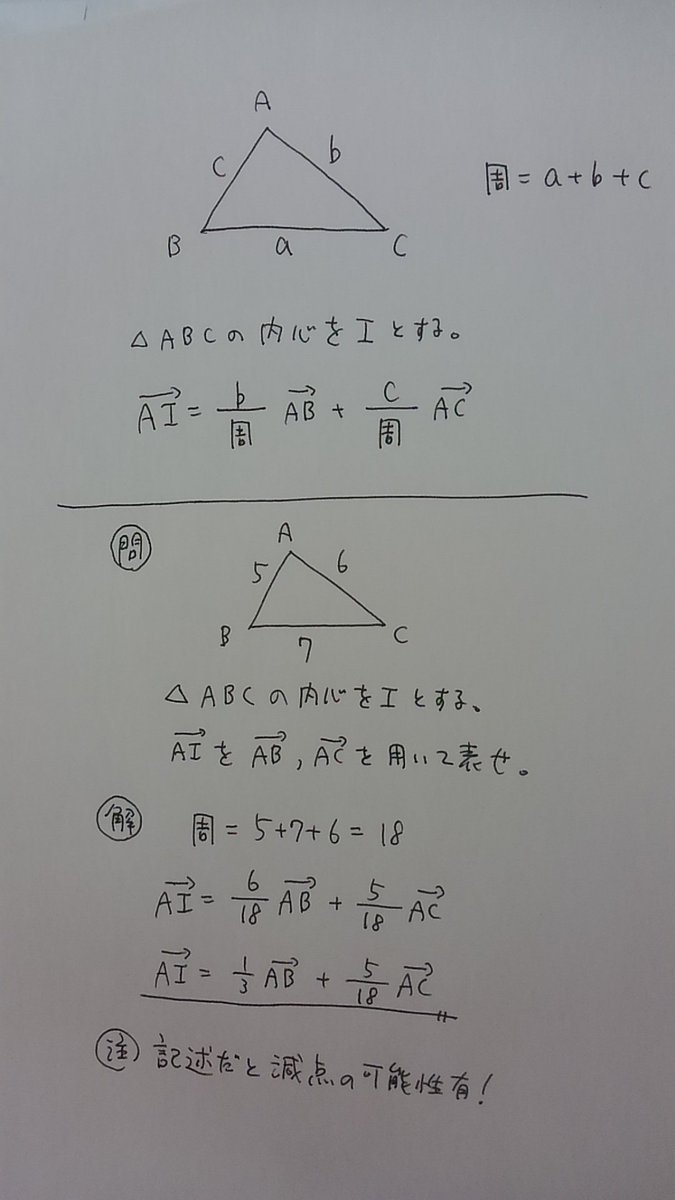 A
c
b
周 = a + b + c
B
a
C
△ABCの内心をIとする。
\overrightarrow{AI} = \frac{b}{周} \overrightarrow{AB} + \frac{c}{周} \overrightarrow{AC}
問
A
5
6
B
C
7
△ABCの内心をIとする、
\overrightarrow{AI}を\overrightarrow{AB}, \overrightarrow{AC}を用いて表せ。
解 周 = 5+7+6 = 18
\overrightarrow{AI} = \frac{6}{18} \overrightarrow{AB} + \frac{5}{18} \overrightarrow{AC}
\overrightarrow{AI} = \frac{1}{3} \overrightarrow{AB} + \frac{5}{18} \overrightarrow{AC}
注 記述だと減点の可能性有!